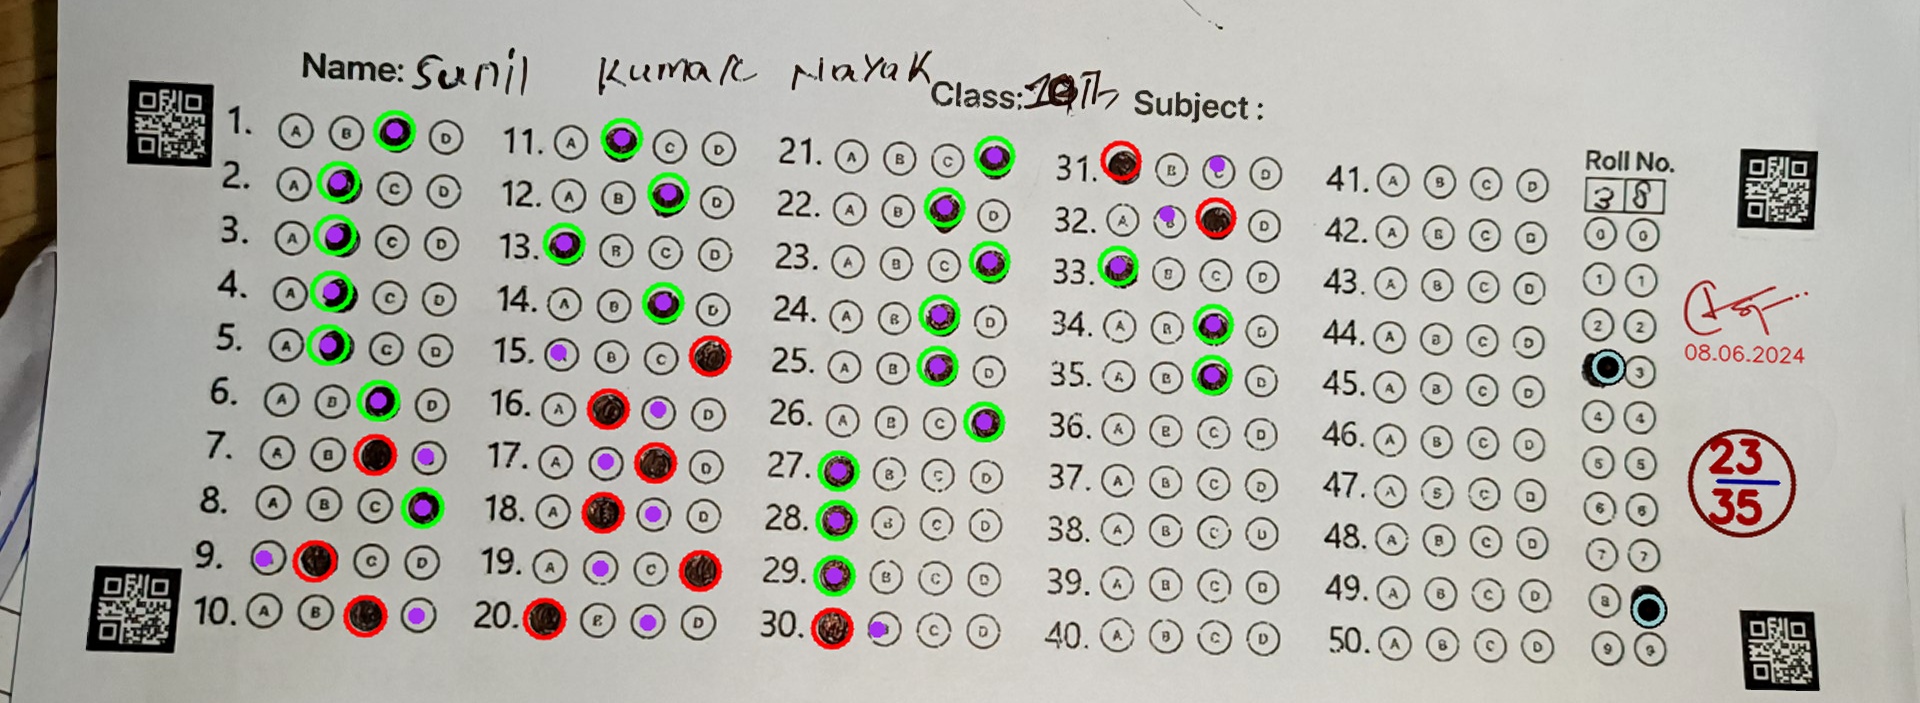 Name: Sunil Kumar Nayak
Class: 10th Subject :
1. A B D
2. A C D
3. A C D
4. A C D
5. A C D
6. A B D
7. A B
8. A B C
9. C D
10. A B
11. A C D
12. A B D
13. B C D
14. A B D
15. B C
16. A D
17. A D
18. A D
19. A C
20. B D
21. A B C
22. A B D
23. A B C
24. A B D
25. A B D
26. A B C
27. B C D
28. B C D
29. B C D
30. C D
31. B D
32. A D
33. B C D
34. A B D
35. A B D
36. A B C D
37. A B C D
38. A B C D
39. A B C D
40. A B C D
41. A B C D
42. A B C D
43. A B C D
44. A B C D
45. A B C D
46. A B C D
47. A B C D
48. A B C D
49. A B C D
50. A B C D
Roll No.
3 8
0 0
1 1
2 2
3
4 4
5 5
6 6
7 7
8
9 9
08.06.2024
23
35